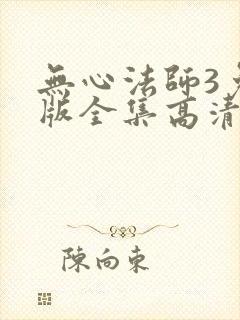 無心法師3
版全集高清
陳向東